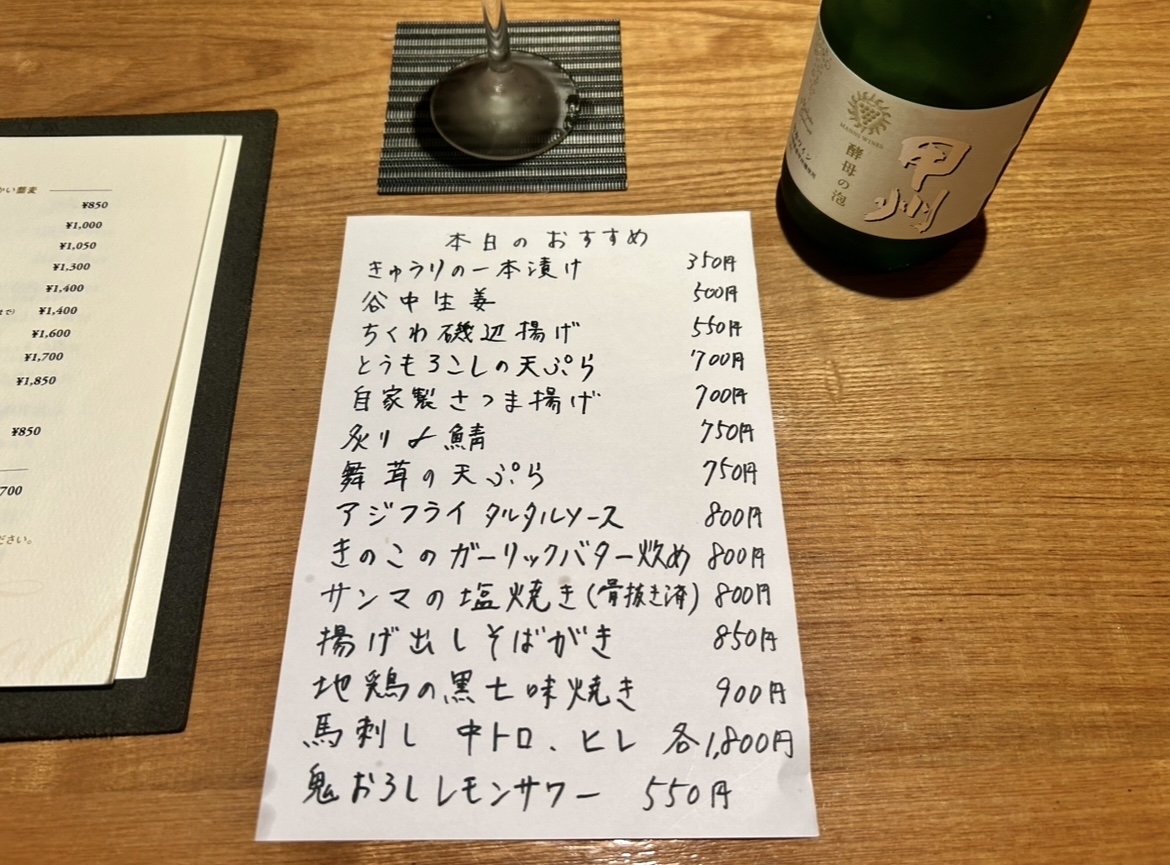 かい蕎麦
¥850
¥1,000
¥1,050
¥1,300
¥1,400
まで) ¥1,400
¥1,600
¥1,700
¥1,850
¥850
700
ださい。
本日のおすすめ
きゅうりの一本漬け 350円
谷中生姜 500円
ちくわ磯辺揚げ 550円
とうもろこしの天ぷら 700円
自家製さつま揚げ 700円
炙り〆鯖 750円
舞茸の天ぷら 750円
アジフライ タルタルソース 800円
きのこのガーリックバター炒め 800円
サンマの塩焼き(骨抜き済) 800円
揚げ出しそばがき 850円
地鶏の黒七味焼き 900円
馬刺し 中トロ、ヒレ 各1,800円
鬼おろしレモンサワー 550円
MANNS WINES
甲州
酵母の泡